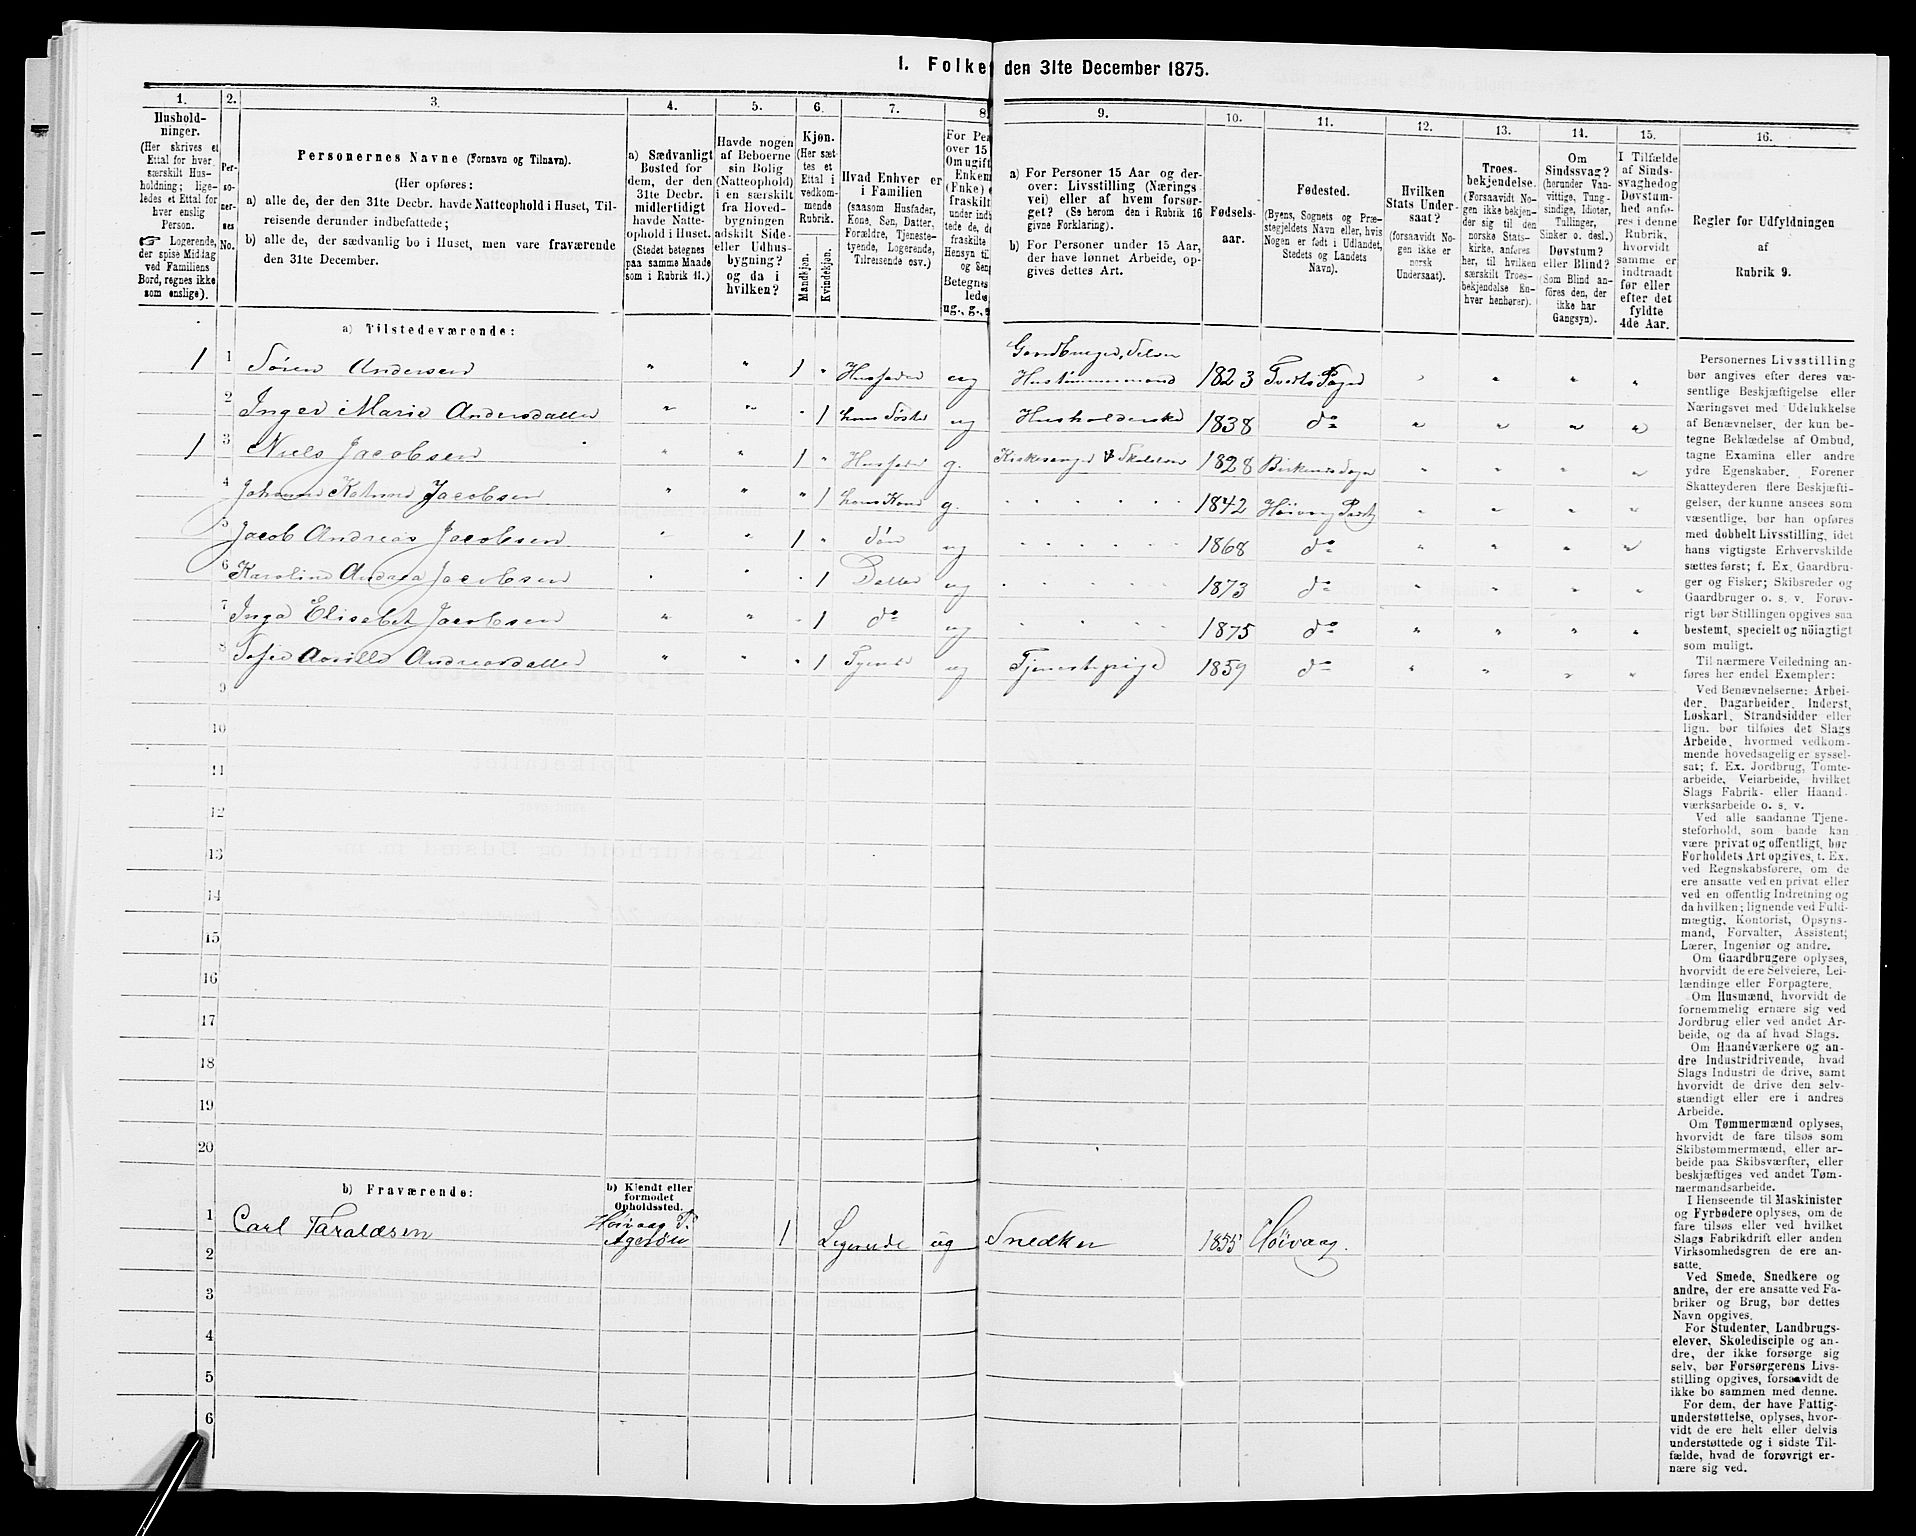 1. Folke den 31te December 1875.
1. 2. 3. 4. 5. 6. 7. 8. 9. 10. 11. 12. 13. 14. 15. 16.
Hushold-
ninger.
(Her skrives et
Ettal for hver
særskilt Hus-
holdning; lige-
ledes et Ettal for
hver enslig
Person.
☞ Logerende,
der spise Middag
ved Familiens
Bord, regnes ikke
som enslige).
Per-
so-
ner-
nes
No.
Personernes Navne (Fornavn og Tilnavn).
(Her opføres:
a) alle de, der den 31te Decbr. havde Natteophold i Huset, Til-
reisende derunder indbefattede;
b) alle de, der sædvanlig bo i Huset, men vare fraværende
den 31te December.
a) Sædvanligt
Bosted for
dem, der den
31te Decbr.
midlertidigt
havde Natte-
ophold i Huset.
(Stedet betegnes
paa samme Maade
som i Rubrik 11.)
Havde nogen
af Beboerne
sin Bolig
(Natteophold)
i en særskilt
fra Hoved-
bygningen
adskilt Side-
eller Udhus-
bygning?
og da i
hvilken?
Kjøn.
(Her sæt-
tes et
Ettal i
vedkom-
mende
Rubrik.
Mandkjøn.
Kvindekjøn.
Hvad Enhver er
i Familien
(saasom Husfader,
Kone, Søn, Datter,
Forældre, Tjeneste-
tyende, Logerende,
Tilreisende osv.)
For Pe
over 15
Om ugift
Enkem
(Fnke) e
fraskilt
under ind
tede de, d
fraskilte
Hensyn t
og Sen
Betegnes
lede
ug., g.,
a) For Personer 15 Aar og der-
over: Livsstilling (Nærings-
vei) eller af hvem forsør-
get? (Se herom den i Rubrik 16
givne Forklaring).
b) For Personer under 15 Aar,
der have lønnet Arbeide, op-
gives dettes Art.
Fødsels-
aar.
Fødested.
(Byens, Sognets og Præ-
stegjeldets Navn eller, hvis
Nogen er født i Udlandet,
Stedets og Landets
Navn).
Hvilken
Stats Under-
saat?
(forsaavidt No-
gen ikke er
norsk
Undersaat).
Troes-
bekjendelse.
(Forsaavidt No-
gen ikke bekjen-
der sig til den
norske Stats-
kirke, anføres
her, til hvilken
særskilt Troes-
bekjendelse En-
hver henhører).
Om
Sindssvag?
(herunder Van-
vittige, Tung-
sindige, Idioter,
Tullinger,
Sinker o. desl.)
Døvstum?
eller Blind?
(Som Blind an-
føres den, der
ikke har
Gangsyn).
I Tilfælde
af Sinds-
svaghedog
Døvstum-
hed anfø-
res i denne
Rubrik,
hvorvidt
samme er
indtraadt
før eller
efter det
fyldte
4de Aar.
Regler for Udfyldningen
af
Rubrik 9.
a) Tilstedeværende:
Gaardbruger, Selveier
1 1 Søren Andersen " " 1 " Husfader ug Hustømmermand 1823 Tvedts Sogn " " " "
2 Inger Marie Andersdatter " " " 1 hans Søster ug Husholderske 1838 do " " " "
1 3 Niels Jacobsen " " 1 " Husfader g. Kirkesanger & Skolelærer 1828 Birkenes Sogn " " " "
4 Johanne Jacobsen " " " 1 hans Kone g. " 1842 Høivaag " " " "
5 Jacob Andreas Jacobsen " " 1 " Søn ug " 1868 do " " " "
6 Karoline Andrea Jacobsen " " " 1 Datter ug " 1873 do " " " "
7 Inga Elisabet Jacobsen " " " 1 do ug " 1875 do " " " "
8 Andreasdatter " " " 1 Tyende ug Tjenestepige 1859 do " " " "
9
10
11
12
13
14
15
16
17
18
19
20
b) Fraværende:
b) Kjendt eller
formodet
Opholdssted.
1 Carl Taraldsen Høivaag 1 Logerende ug Snedker 1855 Høivaag.
2
3
4
5
6
Personernes Livsstilling
bør angives efter deres væ-
sentlige Beskjæftigelse eller
Næringsvei med Udelukkelse
af Benævnelser, der kun be-
tegne Beklædelse af Ombud,
tagne Examina eller andre
ydre Egenskaber. Forener
Skatteyderen flere Beskjæfti-
gelser, der kunne ansees som
væsentlige, bør han opføres
med dobbelt Livsstilling, idet
hans vigtigste Erhvervskilde
sættes først; f. Ex. Gaardbru-
ger og Fisker; Skibsreder og
Gaardbruger o. s. v. Forøv-
rigt bør Stillingen opgives saa
bestemt, specielt og nöiagtigt
som muligt.
Til nærmere Veiledning an-
føres her endel Exempler:
Ved Benævnelserne: Arbei-
der, Dagarbeider, Inderst,
Løskarl, Strandsidder eller
lign. bør tilføies det Slags
Arbeide, hvormed vedkom-
mende hovedsagelig er syssel-
sat; f. Ex. Jordbrug, Tomte-
arbeide, Veiarbeide, hvilket
Slags Fabrik- eller Haand-
værksarbeide o. s. v.
Ved alle saadanne Tjene-
steforhold, som baade kan
være privat og offentligt, bør
Forholdets Art opgives, t. Ex.
ved Regnskabsførere, om de
ere ansatte ved en privat eller
ved en offentlig Indretning og
da hvilken; lignende ved Fuld-
mægtig, Kontorist, Opsyns-
mand, Forvalter, Assistent;
Lærer, Ingeniør og andre.
Om Gaardbrugere oplyses,
hvorvidt de ere Selveiere, Lei-
lændinge eller Forpagtere.
Om Husmænd, hvorvidt de
fornemmelig ernære sig ved
Jordbrug eller ved andet Ar-
beide, og da af hvad Slags.
Om Haandværkere og an-
dre Industridrivende, hvad
Slags Industri de drive, samt
hvorvidt de drive den selv-
stændigt eller ere i andres
Arbeide.
Om Tømmermænd oplyses,
hvorvidt de fare tilsøs som
Skibstømmermænd, eller ar-
beide paa Skibsværfter, eller
beskjæftiges ved andet Tøm-
mermandsarbeide.
I Henseende til Maskinister
og Fyrbødere oplyses, om de
fare tilsøs eller ved hvilket
Slags Fabrikdrift eller anden
Virksomhedsgren de ere an-
satte.
Ved Smede, Snedkere og
andre, der ere ansatte ved Fa-
briker og Brug, bør dettes
Navn opgives.
For Studenter, Landbrugs-
elever, Skoledisciple og an-
dre, der ikke forsørge sig
selv, bør Forsørgerens Livs-
stilling opgives, forsaavidt de
ikke bo sammen med denne.
For dem, der have Fattig-
understøttelse, oplyses, hvor-
vidt de ere helt eller delvis
understøttede og i sidste Til-
fælde, hvad de forøvrigt er-
nære sig ved.